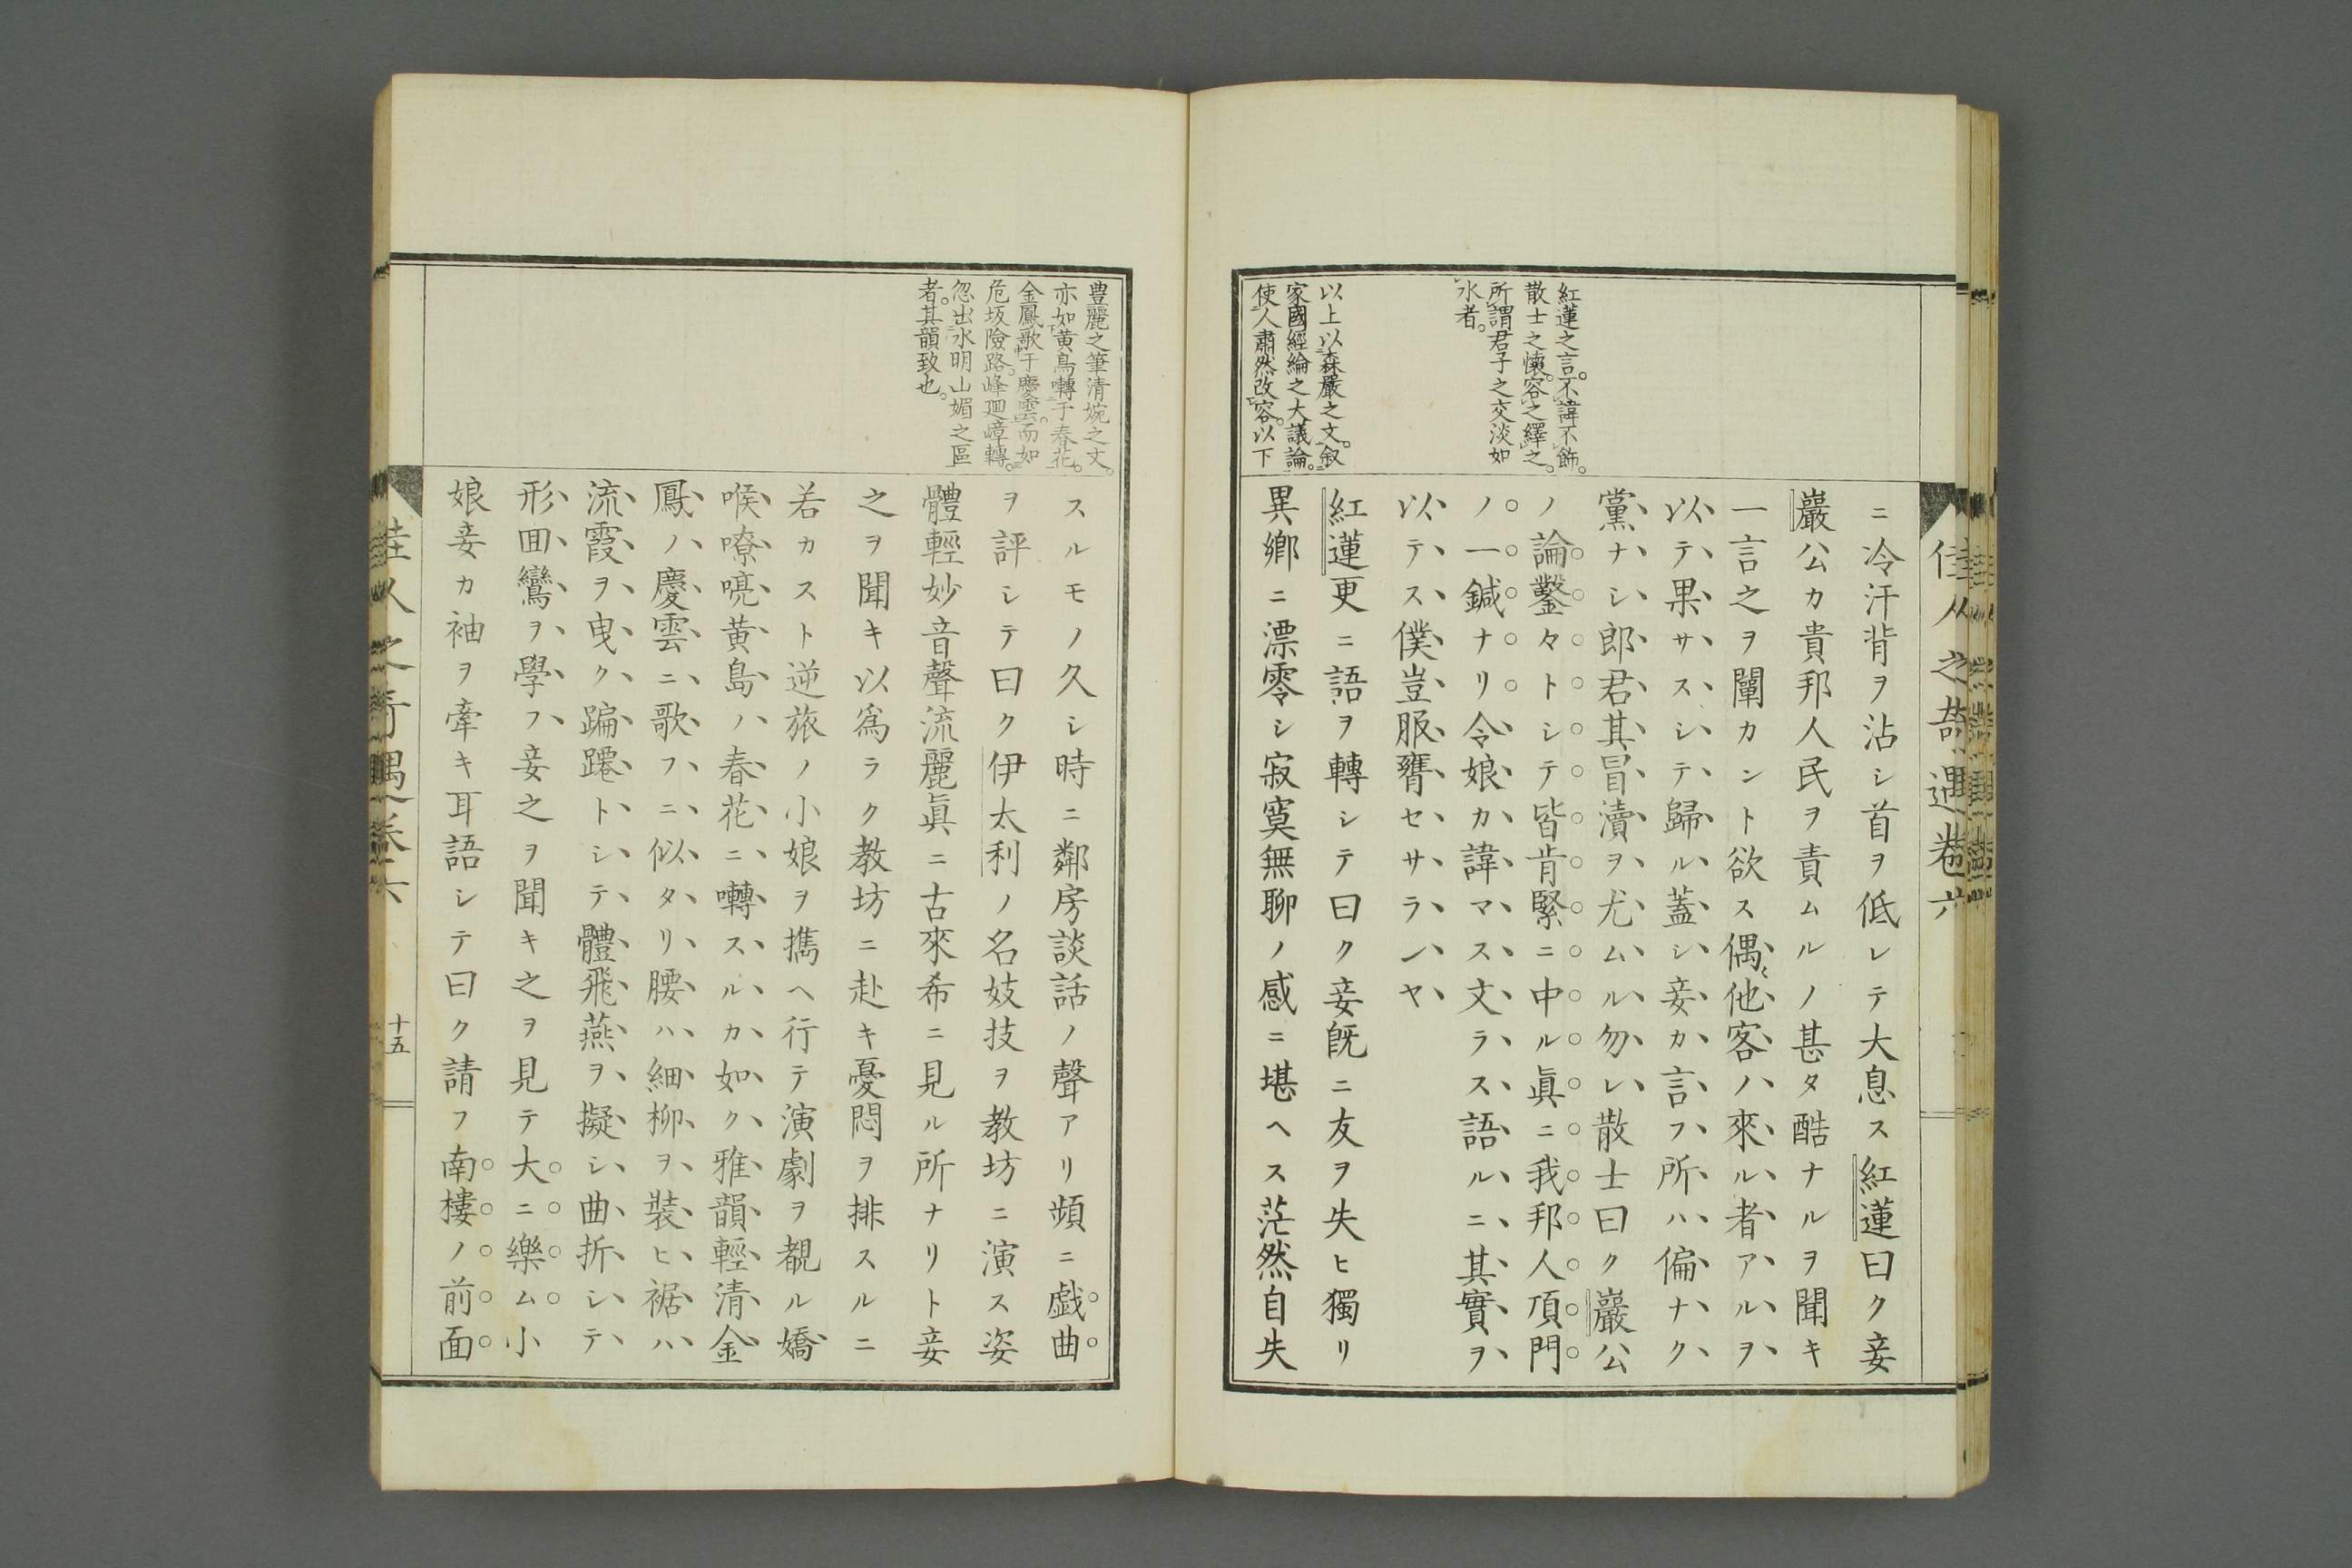 佳人之奇遇卷六
紅蓮之言。不諱不飾。
散士之懷。容之繹之。
所謂君子之交淡如
水者。
以上以森嚴之文。叙
家國經綸之大議論。
使人肅然改容。以下
ニ冷汗背ヲ沾シ首ヲ低レテ大息ス紅蓮曰ク妾
巖公カ貴邦人民ヲ責ムルノ甚タ酷ナルヲ聞キ
一言之ヲ闡カント欲ス偶〻他客ノ來ル者アルヲ
以テ果サスシテ歸ル蓋シ妾カ言フ所ハ偏ナク
黨ナシ郎君其冒瀆ヲ尤ムル勿レ散士曰ク巖公
ノ論鑿々トシテ皆肯綮ニ中ル眞ニ我邦人頂門
ノ一鍼ナリ令娘カ諱マス文ラス語ルニ其實ヲ
以テス僕豈服膺セサランヤ
紅蓮更ニ語ヲ轉シテ曰ク妾既ニ友ヲ失ヒ獨リ
異鄉ニ漂零シ寂寞無聊ノ感ニ堪ヘス茫然自失
豊麗之筆清婉之文。
亦如黄鳥囀于春花。
金鳳歌于慶雲。而如
危坂險路。峰廻嶂轉。
忽出水明山媚之區
者。其韻致也。
スルモノ久シ時ニ鄰房談話ノ聲アリ頻ニ戯曲
ヲ評シテ曰ク伊太利ノ名妓技ヲ教坊ニ演ス姿
體輕妙音聲流麗眞ニ古來希ニ見ル所ナリト妾
之ヲ聞キ以爲ラク教坊ニ赴キ憂悶ヲ排スルニ
若カスト逆旅ノ小娘ヲ攜ヘ行テ演劇ヲ覩ル嬌
喉嘹喨黄島ノ春花ニ囀スルカ如ク雅韻輕清金
鳳ノ慶雲ニ歌フニ似タリ腰ハ細柳ヲ裝ヒ裾ハ
流霞ヲ曳ク蹁躚トシテ體飛燕ヲ擬シ曲折シテ
形回鸞ヲ學フ妾之ヲ聞キ之ヲ見テ大ニ樂ム小
娘妾カ袖ヲ牽キ耳語シテ曰ク請フ南樓ノ前面
佳人之奇遇卷六
十五